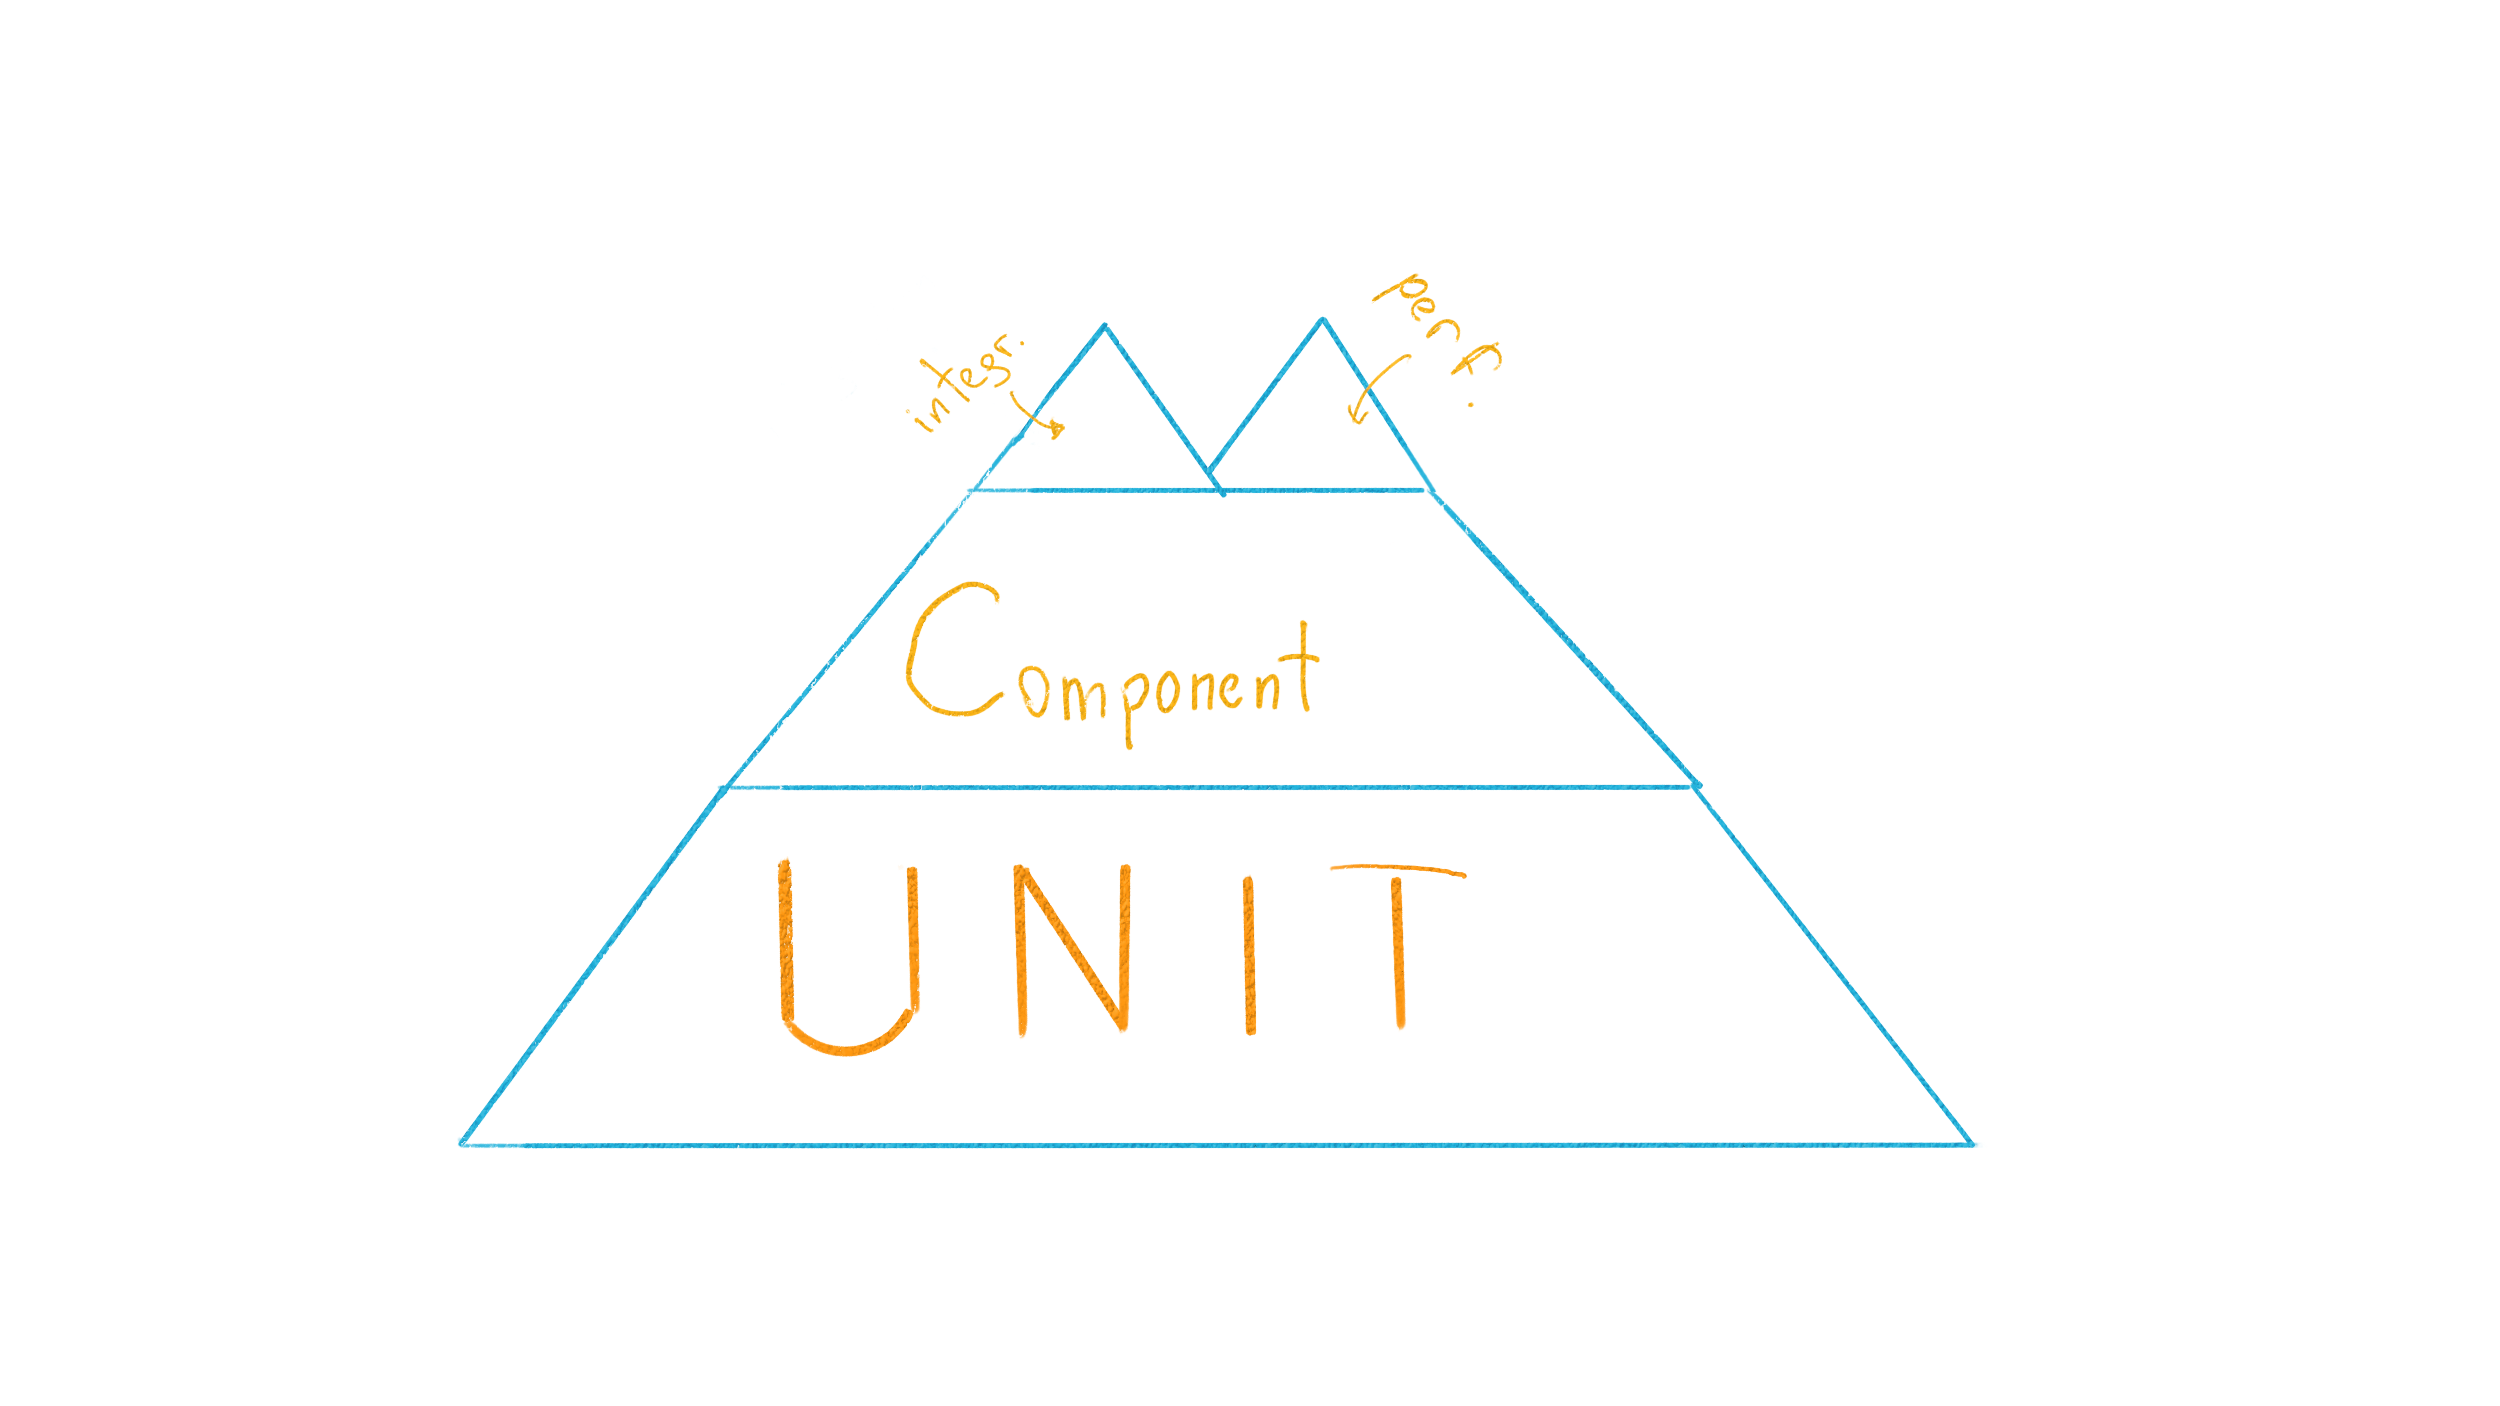 integr.
perf.
Component
UNIT